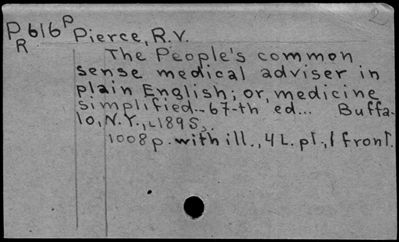 P616P Pierce, R.V.
R
The People's common
sense medical adviser in
plain English; or, medicine
simplified... 67-th ed... Buffa-
lo, N.Y., c1895.
1008p. with ill., 4 L. pl., 1 front.